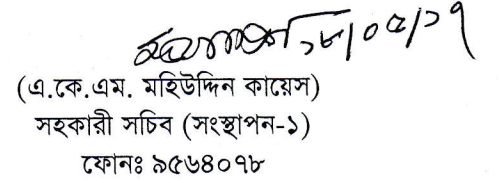 ১৮/০৫/১৭
(এ.কে.এম. মহিউদ্দিন কায়েস)
সহকারী সচিব (সংস্থাপন-১)
ফোনঃ ৯৫৬৪০৭৮